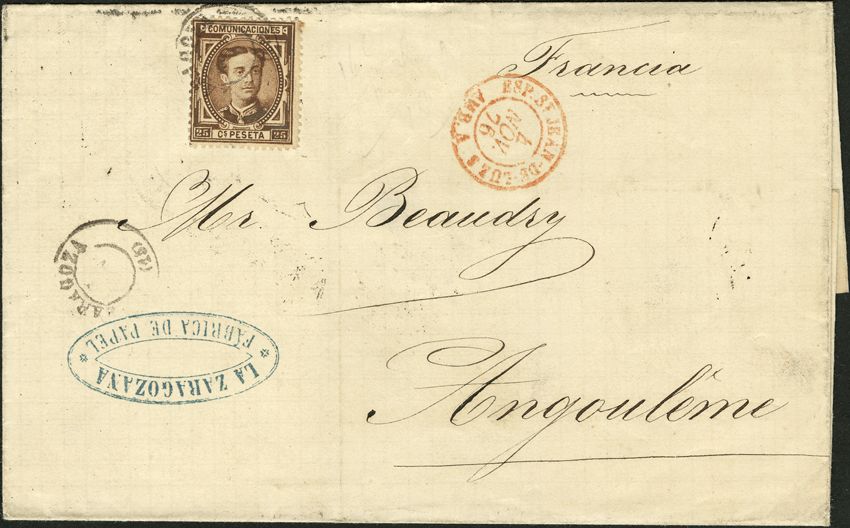 COMUNICACIONES
25 Cs PESETA 25
Francia
ESP. St JEAN-DE-LUZ
AMB. A
4
NOV
76
Mr. Beaudry
ZARAGOZA
LA ZARAGOZANA
FÁBRICA DE PAPEL
Angoulême